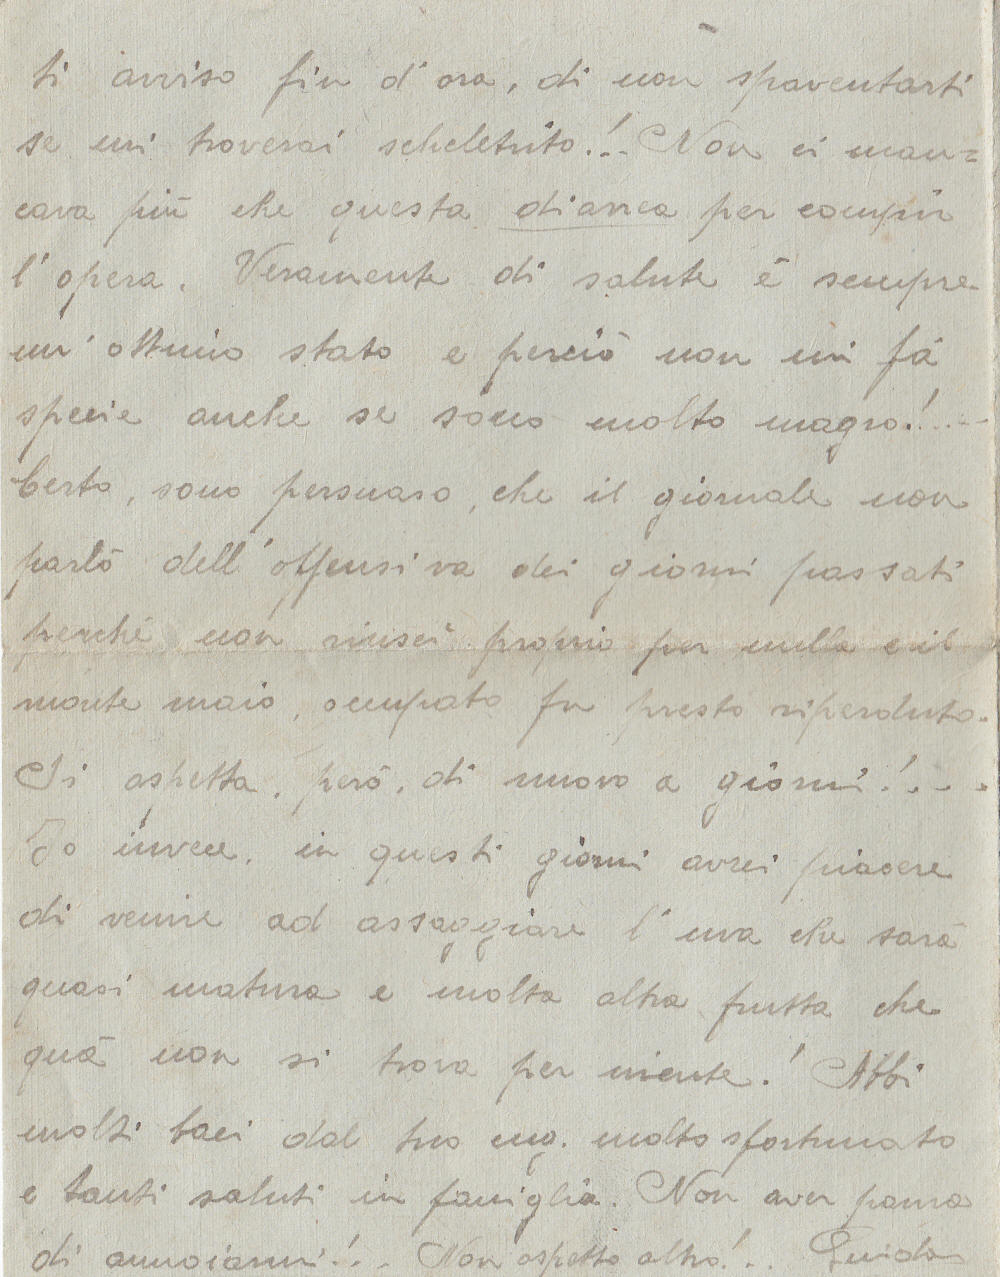 ti avviso fin d'ora, di non spaventarti
se mi troverai scheletrito!.. Non ci man=
cava più che questa diarrea per compir
l'opera. Veramente di salute è sempre
un'ottimio stato e perciò non mi fà
specie anche se sono molto magro!...
Certo, sono persuaso, che il giornale non
parlò dell'offensiva dei giorni passati
perché non riuscì proprio per nulla e il
monte maio, occupato fu presto riperduto.
Si aspetta, però, di nuovo a giorni!...
Io invece, in questi giorni avrei piacere
di venire ad assaggiare l'uva che sarà
quasi matura e molta altra frutta che
quà non si trova per niente! Abbi
molti baci dal tuo molto sfortunato
e tanti saluti in famiglia. Non aver paura
di annoiarmi!.. Non aspetto altro!.. Guido